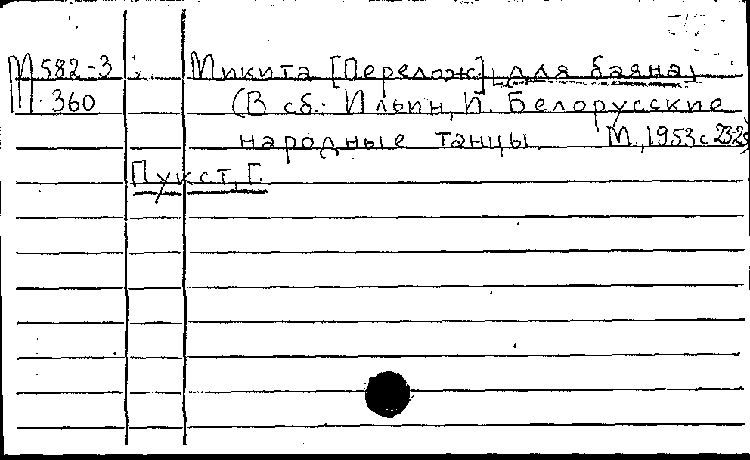 М 582-3 Микита [Перелож], для баяна,
М. 360 (В сб.: Ильин, И. Белорусские
народные танцы. М., 1953 с 23-25)
Пукст, Г.